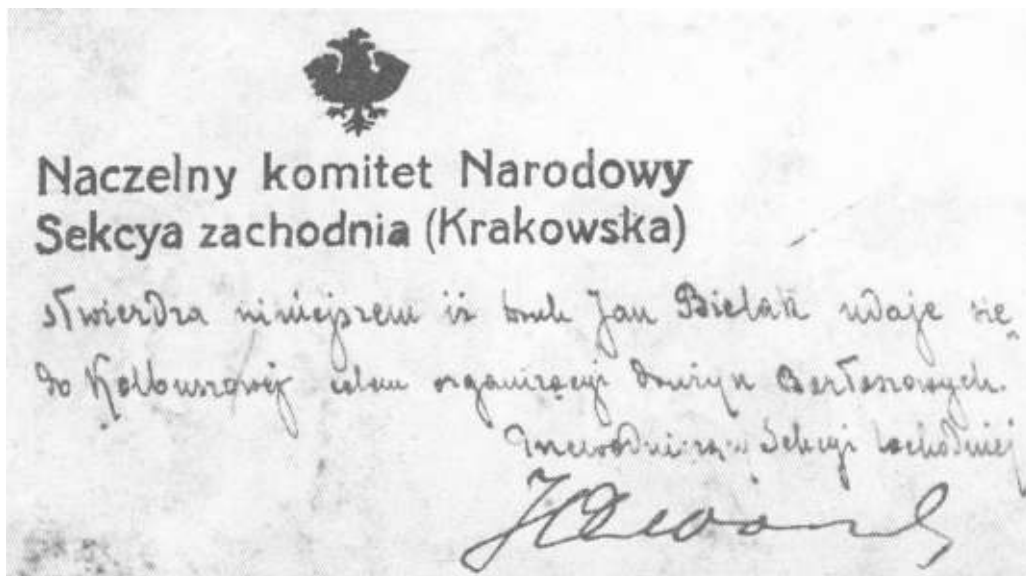 Naczelny komitet Narodowy
Sekcya zachodnia (Krakowska)
stwierdza niniejszem iż druh Jan Bielak udaje się
do Kolbuszowej celem organizacyi drużyn Bartoszowych.
Przewodniczący Sekcyi zachodniej